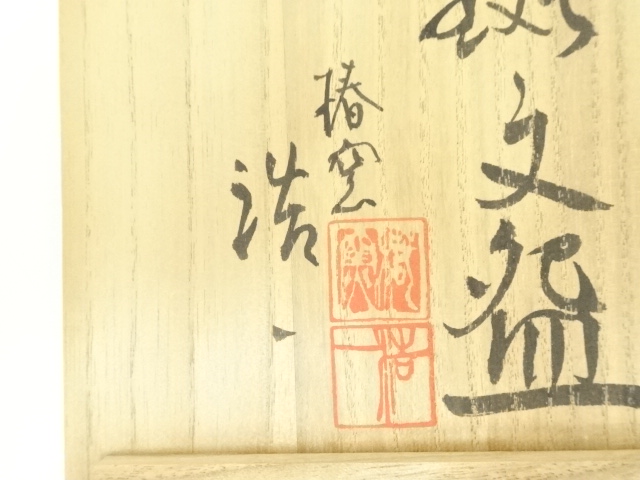 文盌
椿窯
浩一
浩一